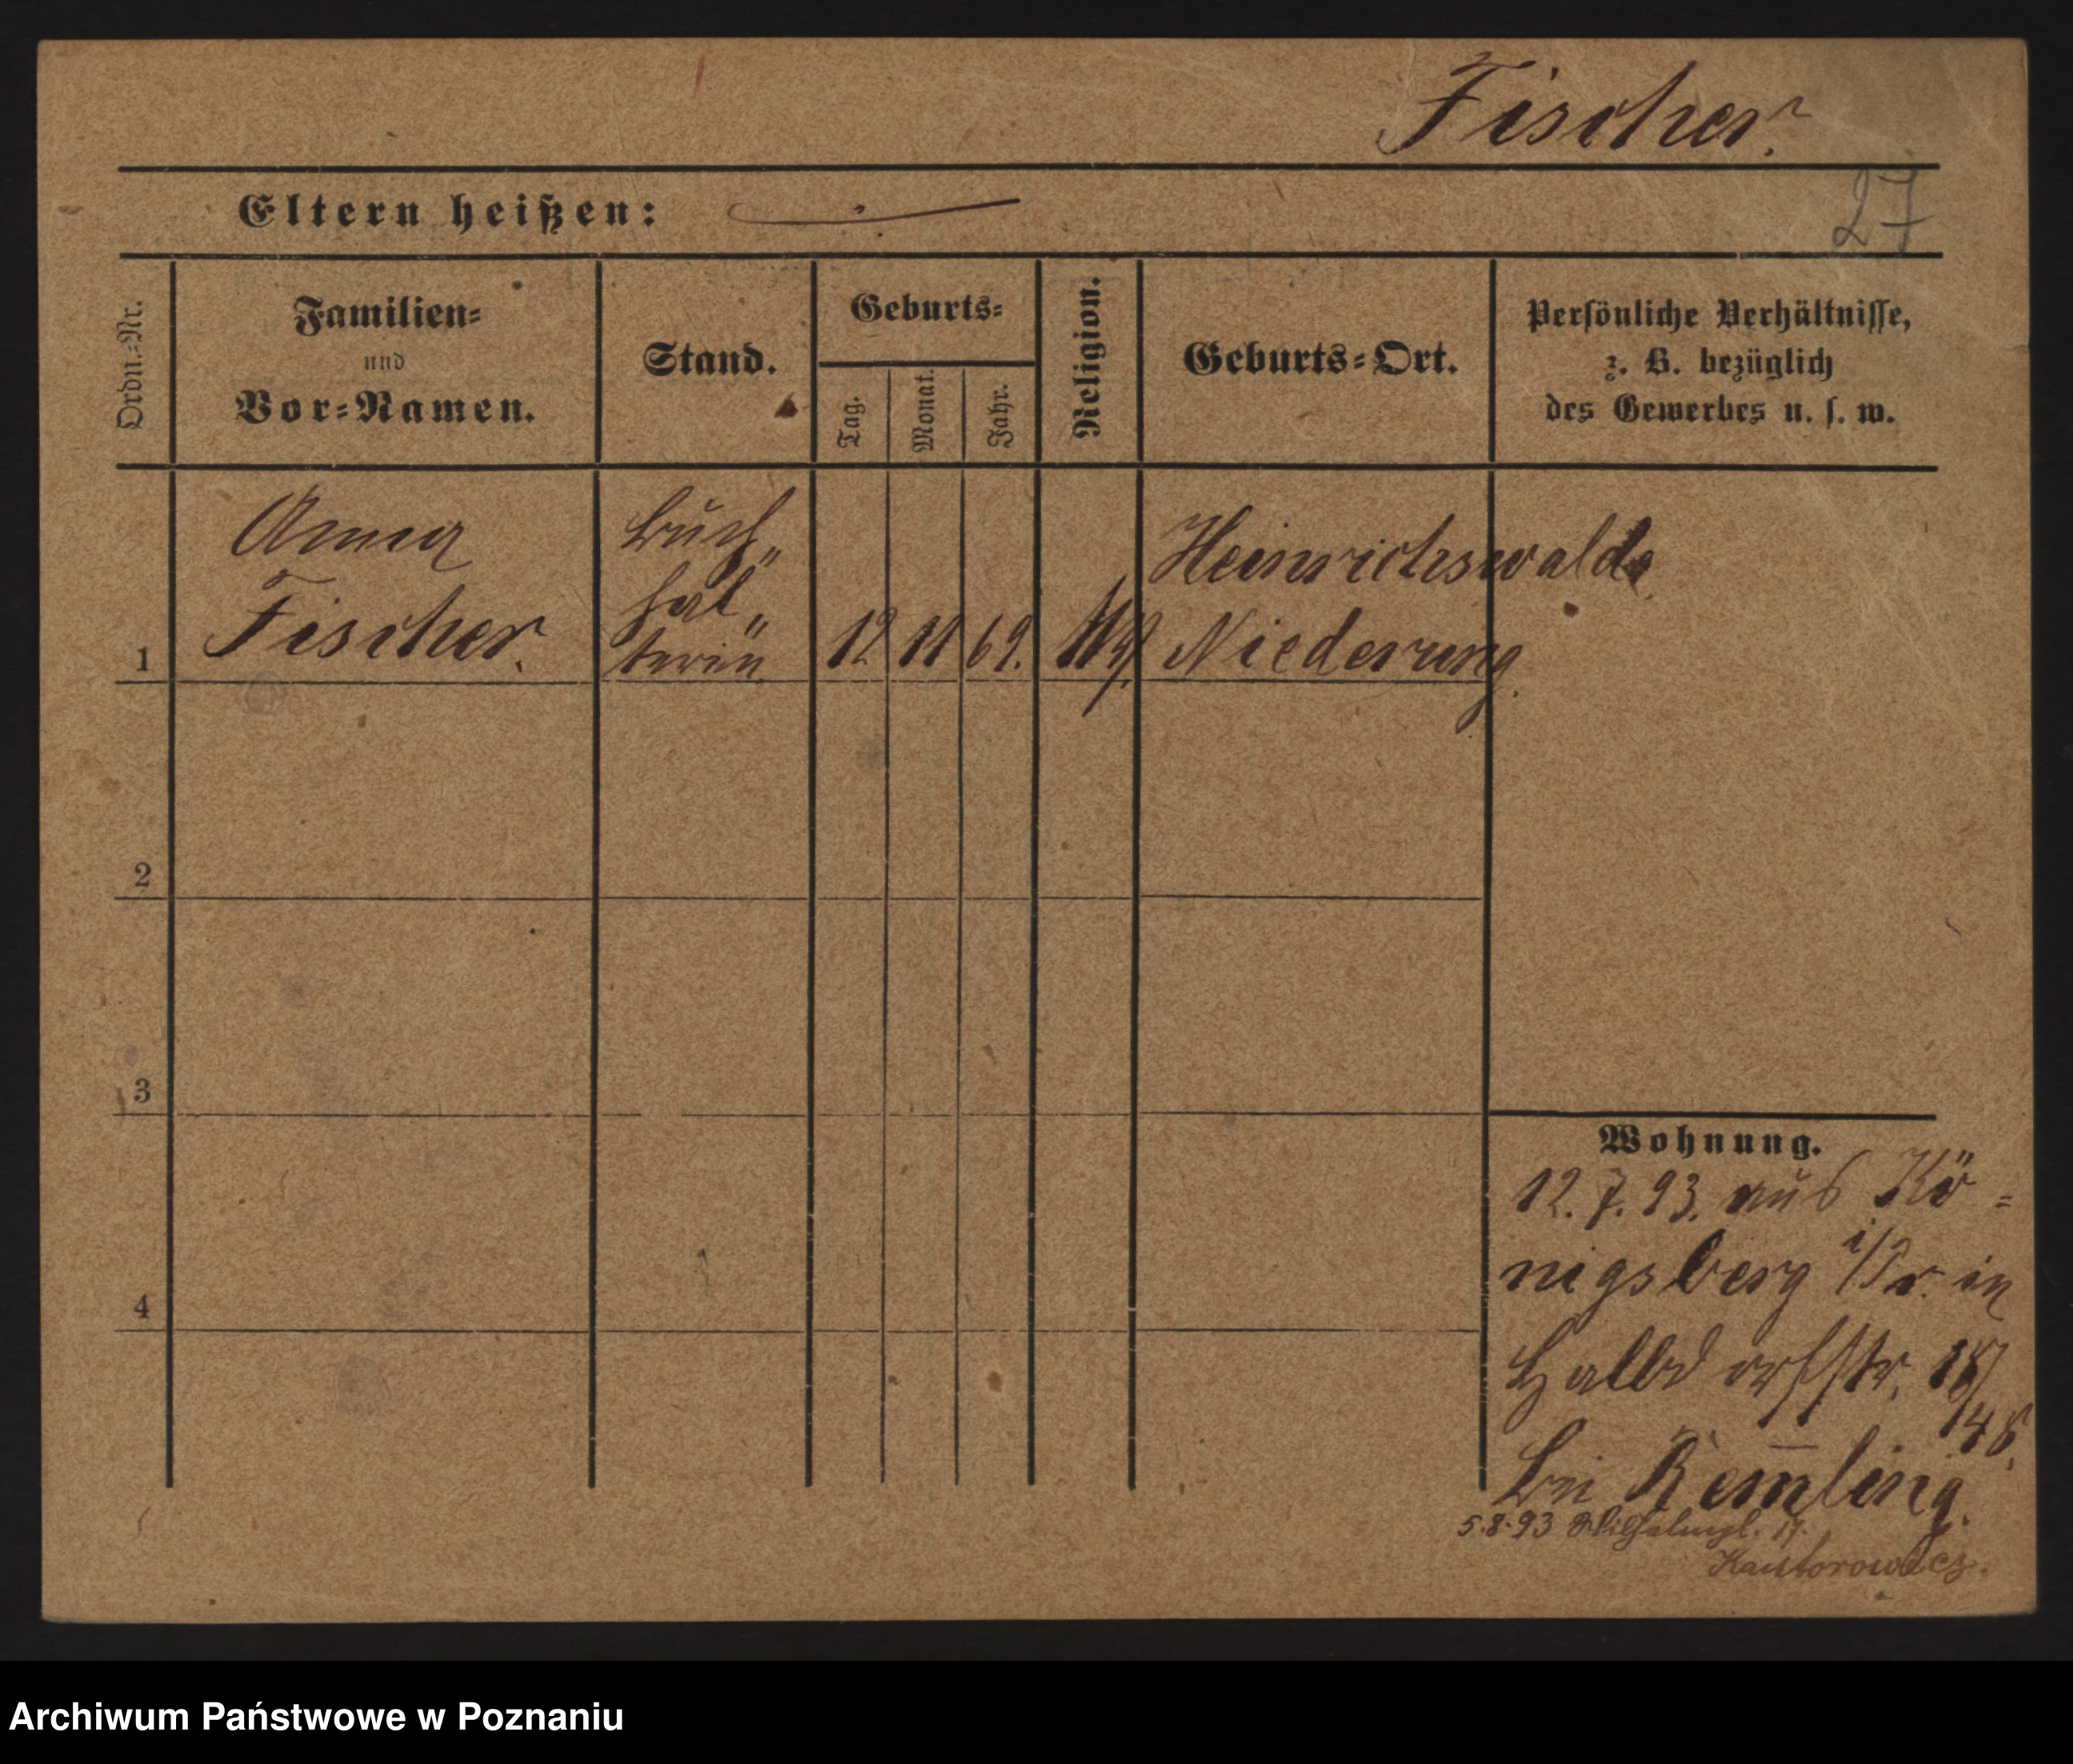 Fischer.
27
Eltern heißen:
Ordn.-Nr.
Familien-
und
Vor-Namen.
Stand.
Geburts-
Tag.
Monat.
Jahr.
Religion.
Geburts-Ort.
Persönliche Verhältnisse,
z. B. bezüglich
des Gewerbes u. s. w.
1
Anna
Fischer.
Buch„
hal„
terin
12
11
69.
Heinrichswalde
Niederung.
2
3
4
Wohnung.
12.7.93. aus Kö=
nigsberg i/Pr. in
Halbdorfstr.
bei Remling.
5.8.93 Wilhelmpl.
Kantorowicz.
Archiwum Państwowe w Poznaniu